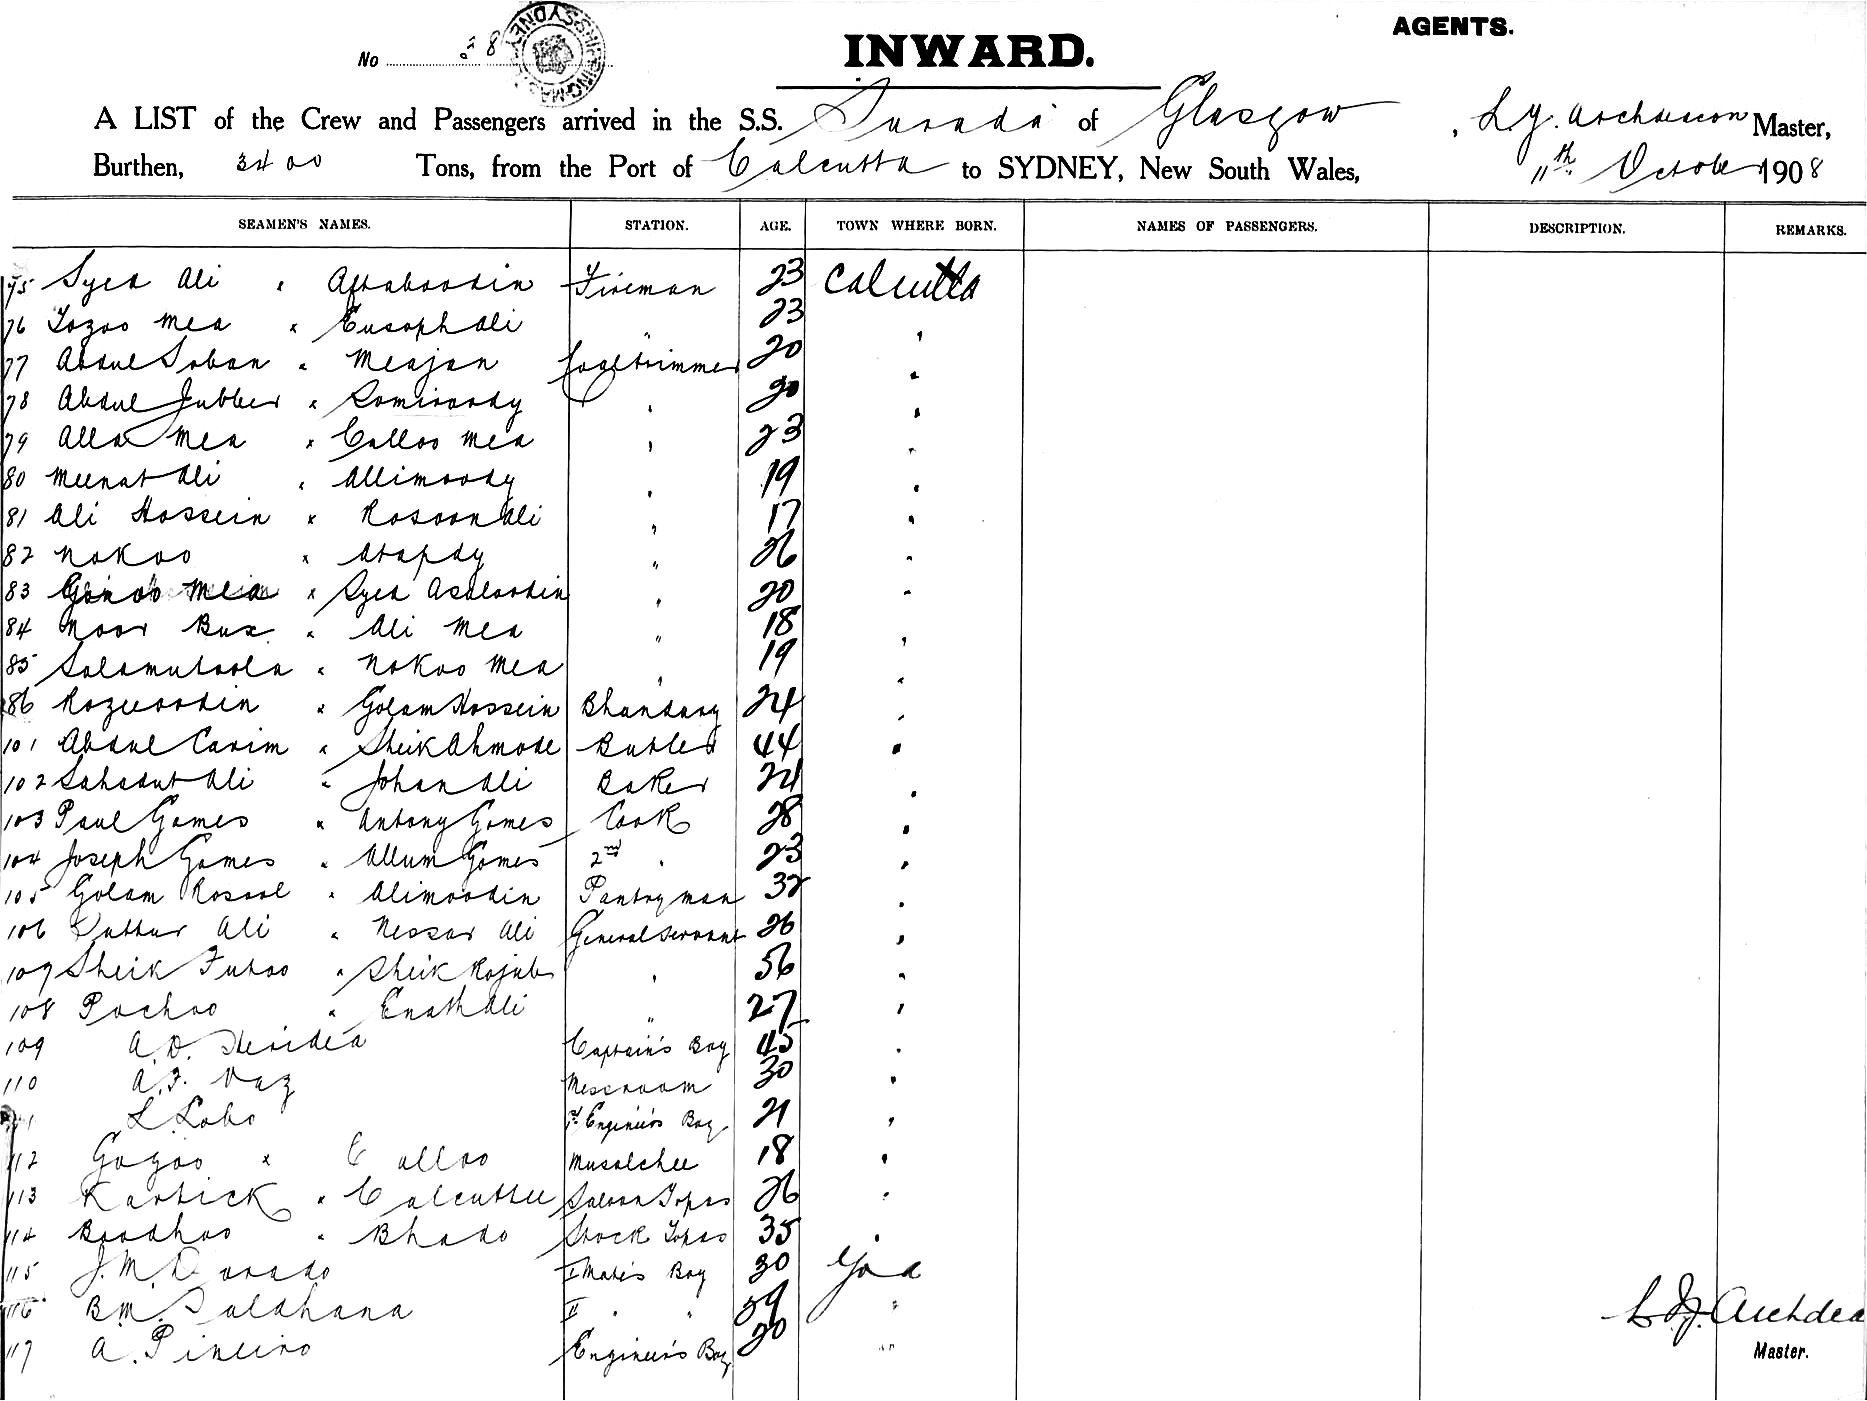 AGENTS.
No 8
INWARD.
A LIST of the Crew and Passengers arrived in the S.S. of Glasgow, Master,
Burthen, 3400 Tons, from the Port of Calcutta to SYDNEY, New South Wales, 11th October 1908
SEAMEN'S NAMES. STATION. AGE. TOWN WHERE BORN. NAMES OF PASSENGERS. DESCRIPTION. REMARKS.
75 Syed Ali " Aftaboodin Fireman 23 Calcutta
76 Mea " Eusoph Ali " 23 "
77 Abdul Soban " Meajan Coaltrimmer 20 "
78 Abdul Jubber " " 20 "
79 Alla Mea " Calloo Mea " 23 "
80 Ali " Allimoody " 19 "
81 Ali Hossein " Rosoon Ali " 17 "
82 Nokoo " " 26 "
83 Mea " Syed " 20 "
84 Noor Bux " Ali Mea " 18 "
85 " Nokoo Mea " 19 "
86 " Golam Hossein Bhandary 24 "
101 Abdul Carim " Sheik Ahmode Butler 44 "
102 Sahadut Ali " Johan Ali Baker 24 "
103 Paul Gomes " Antony Gomes Cook 28 "
104 Joseph Gomes " Allum Gomes 2nd " 23 "
105 Golam Rosool " Alimoodin Pantryman 32 "
106 Ali " Nessar Ali General Servant 26 "
107 Sheik " Sheik Rojub " 56 "
108 Pochoo " Enath Ali " 27 "
109 A.D. Captain's Boy 45 "
110 A.F. Vaz Messroom 30 "
111 L. Lobo 1st Engineer's Boy 21 "
112 Gogoo " Calloo Musalchee 18 "
113 Kartick " Calcuttee Saloon Topas 26 "
114 Boodhoo " Bhado Topas 35 "
115 J.M. I Mate's Boy 30 Goa
116 B.M. Saldhana II " " 59 "
117 A. Pineiro Engineer's Boy 20 "
Master.